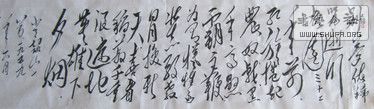 别梦依稀
咒逝川
故园三十二
年前
红旗卷起
农奴戟黑
手高悬
霸主鞭
为有牺牲
多壮志敢教
日月换新
天喜看
稻菽千重
浪遍地
英雄下
夕烟
一九五九
年六月
www.shufa.org